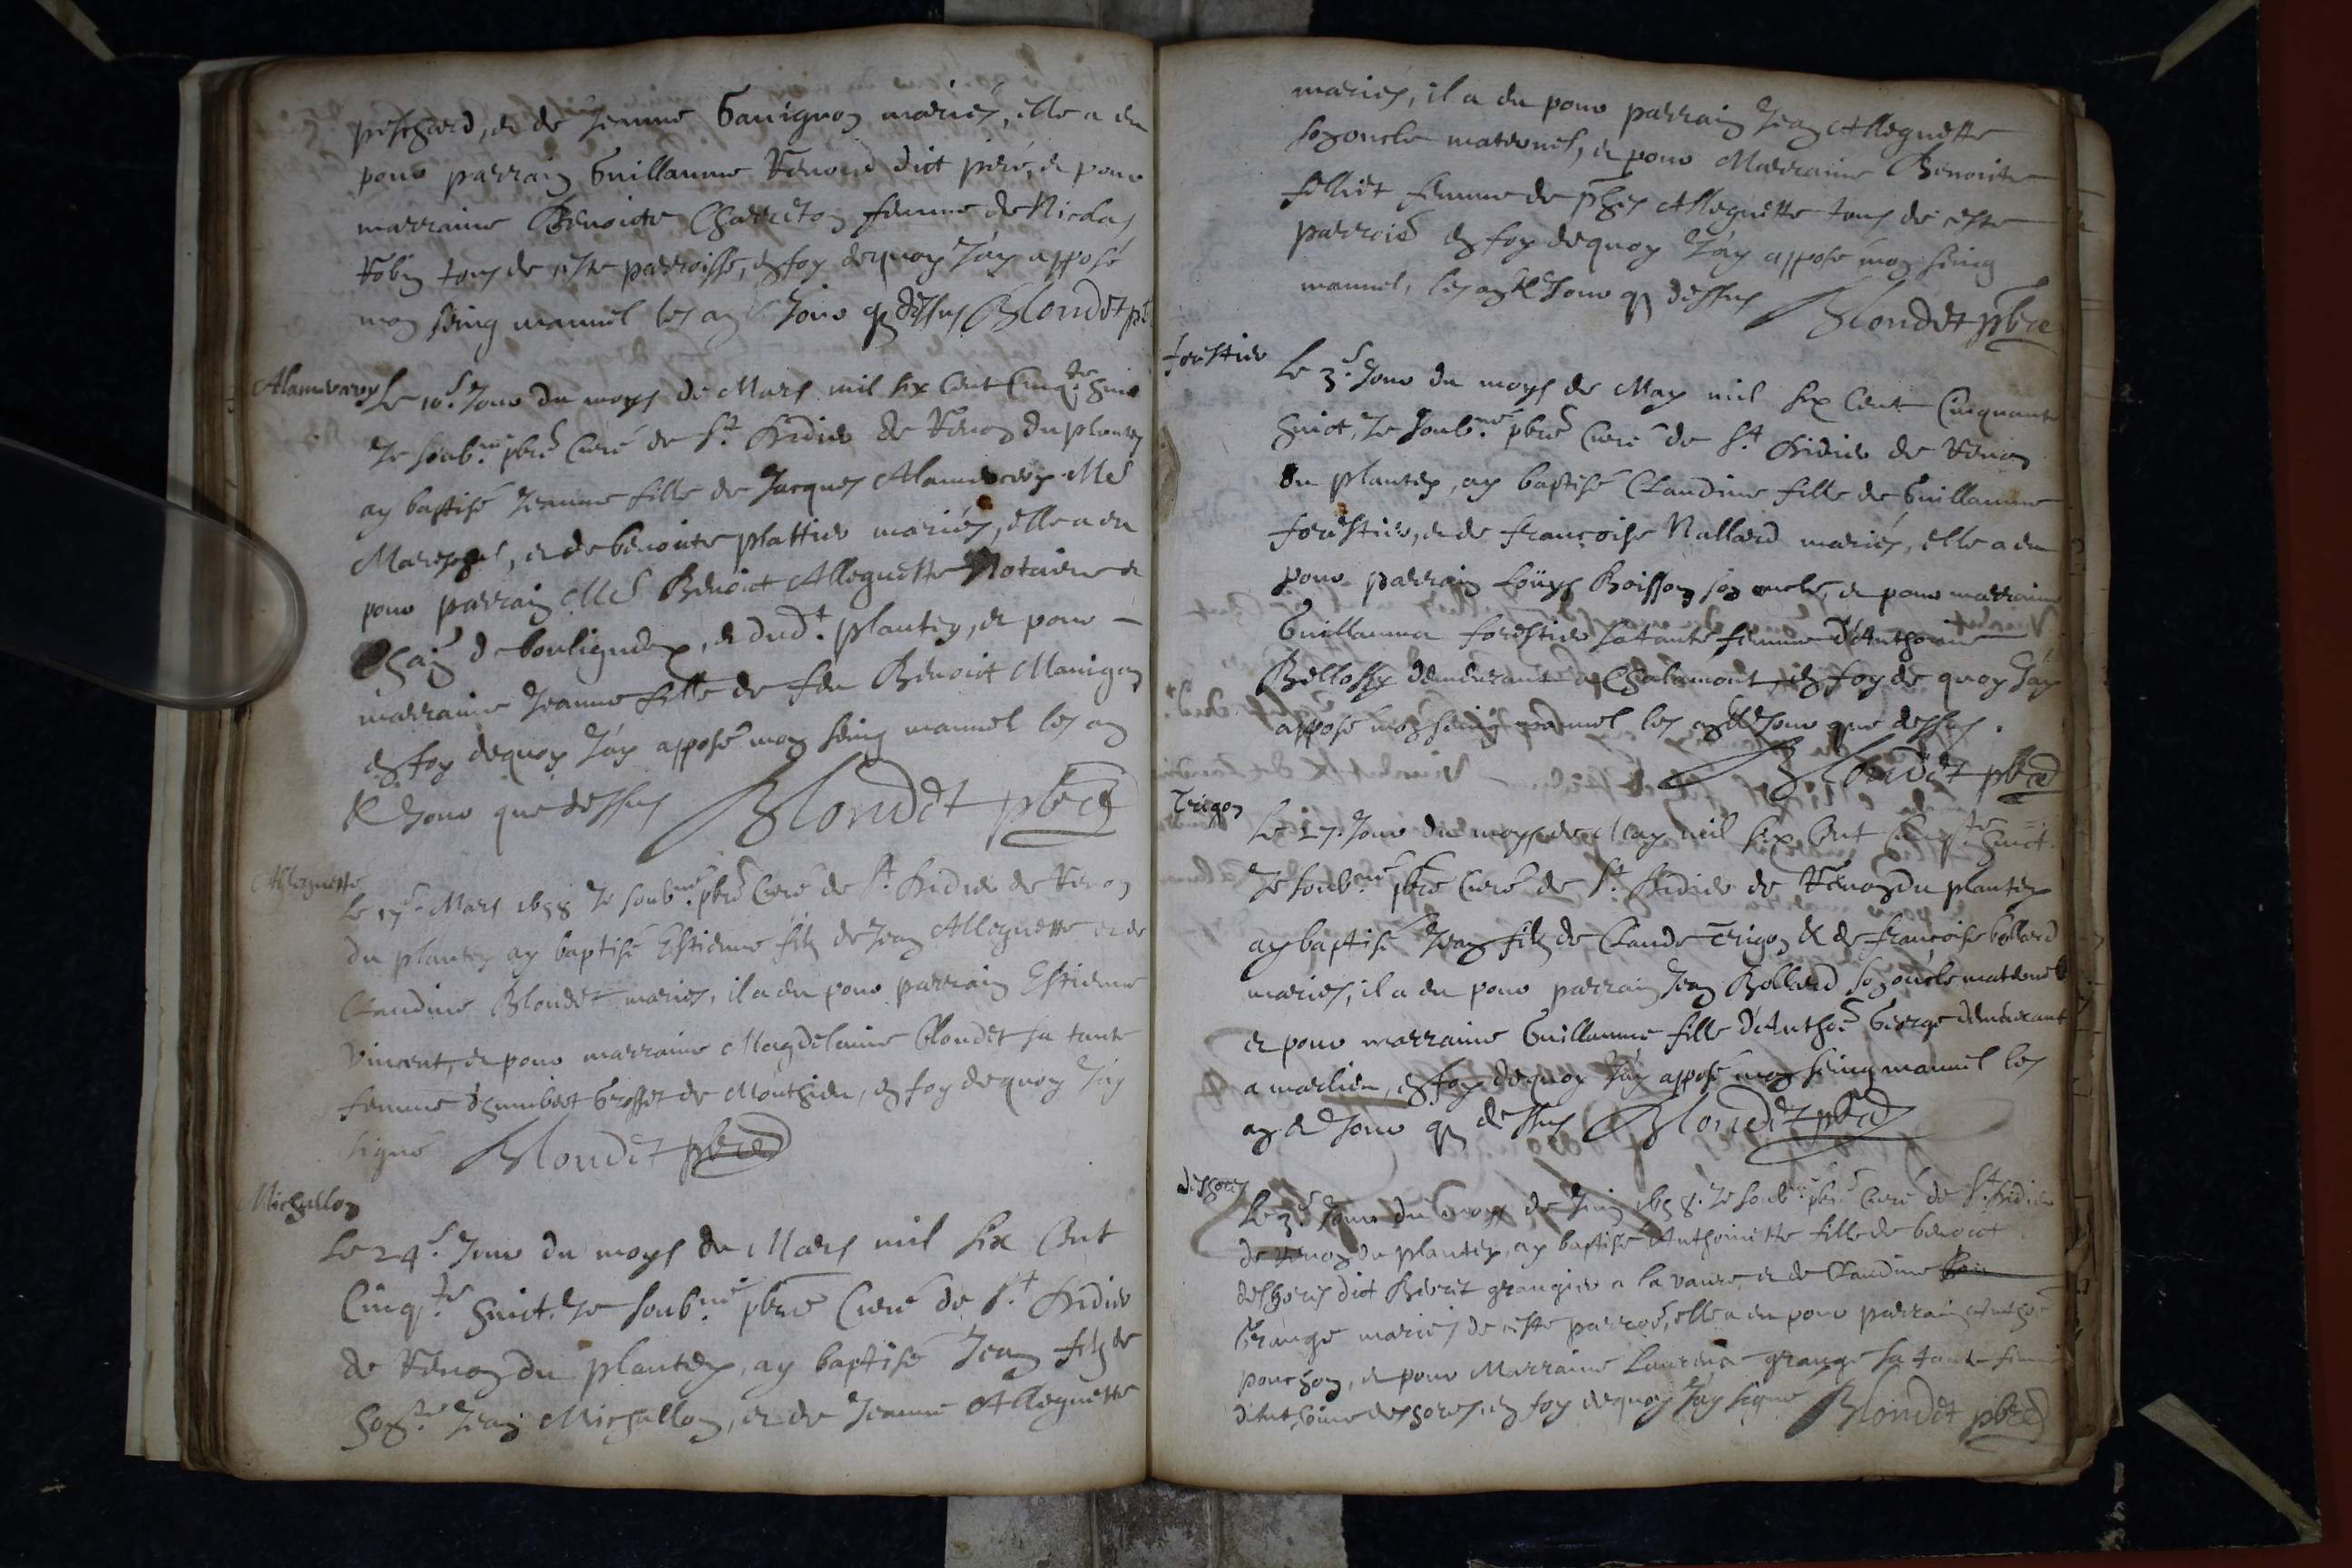 peschard, et de Jeanne Gavignon mariés, elle a eu
pour parrain Guillaume Renoud dict piré, et pour
marraine Benoicte Charreton femme de Nicolas
Robin tous de ceste parroisse, en foy dequoy J'ay apposé
mon seing manuel les an & Jour q dessus Blondet pbr
Alamercery
Le 10e. Jour du moys de Mars mil six Cent Cinqte. huict
Je soubné. pbre Curé de St. Didier de Renon du plantey
ay baptisé Jeanne fille de Jacques Alamercery Me
Mareschal, et de benoicte plattier mariés, elle a eu
pour parrain Me Benoict Alleguette Notaire et
Chain de bouligneux, et dudt. plantey, et pour
marraine Jeanne fille de feu Benoict Manigon
en foy dequoy J'ay apposé mon seing manuel les an
& Jour que dessus Blondet pbre
Alleguette
Le 17e. Mars 1658 Je soubné. pbre Curé de St. Didier de Renon
du plantey ay baptisé Estienne filz de Jean Alleguette et de
Claudine Blondet mariés, il a eu pour parrain Estienne
Vincent, et pour marraine Magdelaine Blondet sa tante
femme d'humbert Grosset de Monthieu, en foy dequoy J'ay
signé Blondet pbre
Michallon
Le 24e. Jour du moys de Mars mil six Cent
Cinqte. huict. Je soubné. pbre Curé de St. Didier
de Renon du plantey, ay baptisé Jean filz de
honte. Jean Michallon, et de Jeanne Alleguette
mariés, il a eu pour parrain Jean Alleguette
son oncle maternel, et pour Marraine Benoicte
felliet femme de Alleguette tous de ceste
parroisse en foy dequoy J'ay apposé mon seing
manuel, les an & Jour q dessus Blondet pbre
forestier
Le 3e. Jour du moys de May mil six Cent Cinquante
huict, Je soubné. pbre Curé de St. Didier de Renon
du plantey, ay baptisé Claudine fille de Guillaume
forestier, et de françoise Nallard mariés, elle a eu
pour parrain Loüys Boisson son oncle, et pour marraine
Guillauma forestier sa tante femme d'Anthoine
Bellossy demeurant a Chalamont, en foy de quoy J'ay
apposé mon seing manuel les an & Jour que dessus.
Blondet pbre
Trigon
Le 27. Jour du moys de May mil six Cent Cinqte. huict.
Je soubné. pbre Curé de St. Didier de Renon du plantey
ay baptisé Jean filz de Claude Trigon & de françoise bollard
mariés, il a eu pour parrain Jean Bollard son oncle maternel
et pour marraine Guillaume fille d'Anthoe George demeurant
a marlieu, en foy dequoy J'ay apposé mon seing manuel les
an & Jour q dessus Blondet pbre
deshores
Le 3e. Jour du moys de Juin 1658. Je soubné. pbre Curé de St. Didier
de Renon du plantey, ay baptisé Anthoinette fille de benoict
deshores dict grangier a la vavre et de Claudine
Grange mariés de ceste parroe, elle a eu pour parrain Anthoe
ponchon, et pour Marraine Laurence grange sa tante femme
d'Anthoine deshores, en foy dequoy J'ay signé Blondet pbre